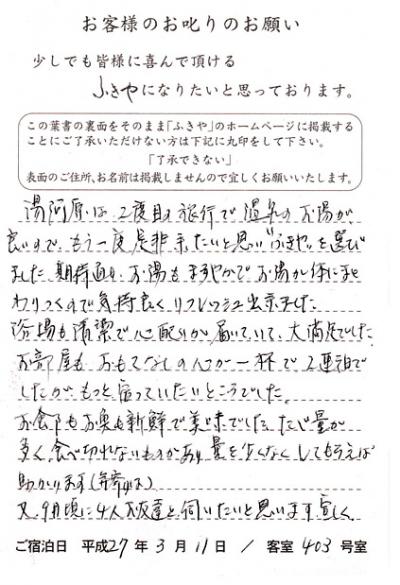 お客様のお叱りのお願い
少しでも皆様に喜んで頂ける
ふきやになりたいと思っております。
この葉書の裏面をそのまま「ふきや」のホームページに掲載する
ことにご了承いただけない方は下記に丸印をして下さい。
「了承できない」
表面のご住所、お名前は掲載しませんので宜しくお願いいたします。
湯河原は2度目の旅行で温泉のお湯が、
良いので、もう一度是非来たいと思い"ふきや"を選び
ました。期待通り、お湯もまろやかでお湯が体にま
わりつくので気持良くリフレッシュ出来ました。
浴場も清潔で心配りが届いていて、大満足でした。
お部屋も、おもてなしの心が一杯で2連泊で
したが、もっと宿っていたいところでした。
お食事もお魚も新鮮で美味でした。ただ量が
多く、食べ切れないものがあり、量を少なくしてもらえば
助かります
又、9月頃に4人友達と伺いたいと思います。宜しく
ご宿泊日 平成27年3月11日 / 客室 403号室